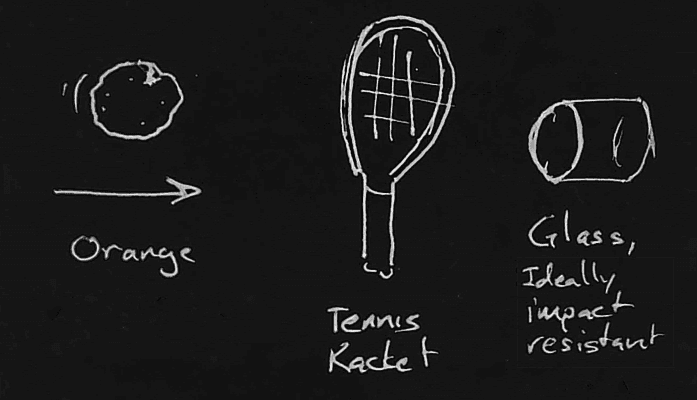 Orange
Tennis
Racket
Glass,
Ideally
impact
resistant